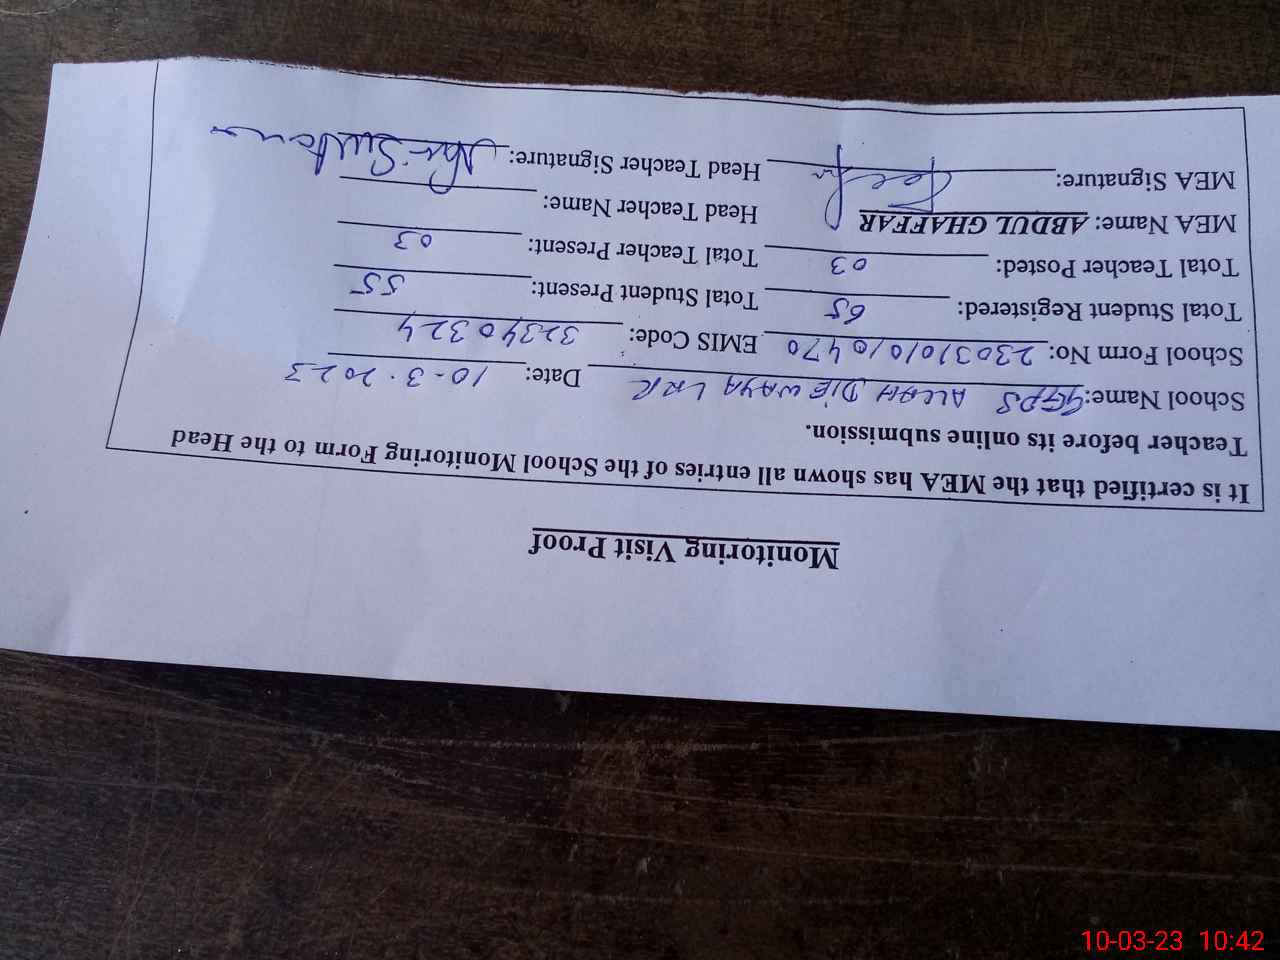 Monitoring Visit Proof
It is certified that the MEA has shown all entries of the School Monitoring Form to the Head
Teacher before its online submission.
School Name: GGPS ALLAH DIEWAYA LRK Date: 10-3-2023
School Form No: 2303101010470 EMIS Code: 32340324
Total Student Registered: 65 Total Student Present: 55
Total Teacher Posted: 03 Total Teacher Present: 03
MEA Name: ABDUL GHAFFAR Head Teacher Name:
MEA Signature: Head Teacher Signature:
10-03-23 10:42